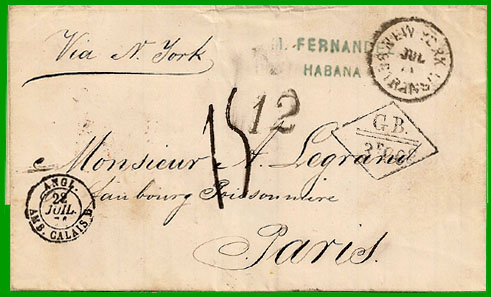 Via N. York
M. FERNAND
HABANA
NEW YORK
JUL
TRANSIT
12
15
G.B.
Monsieur A. Legrand
faubourg Poissonnière
Paris.
ANGL.
22
JUIL.
AMB. CALAIS D.